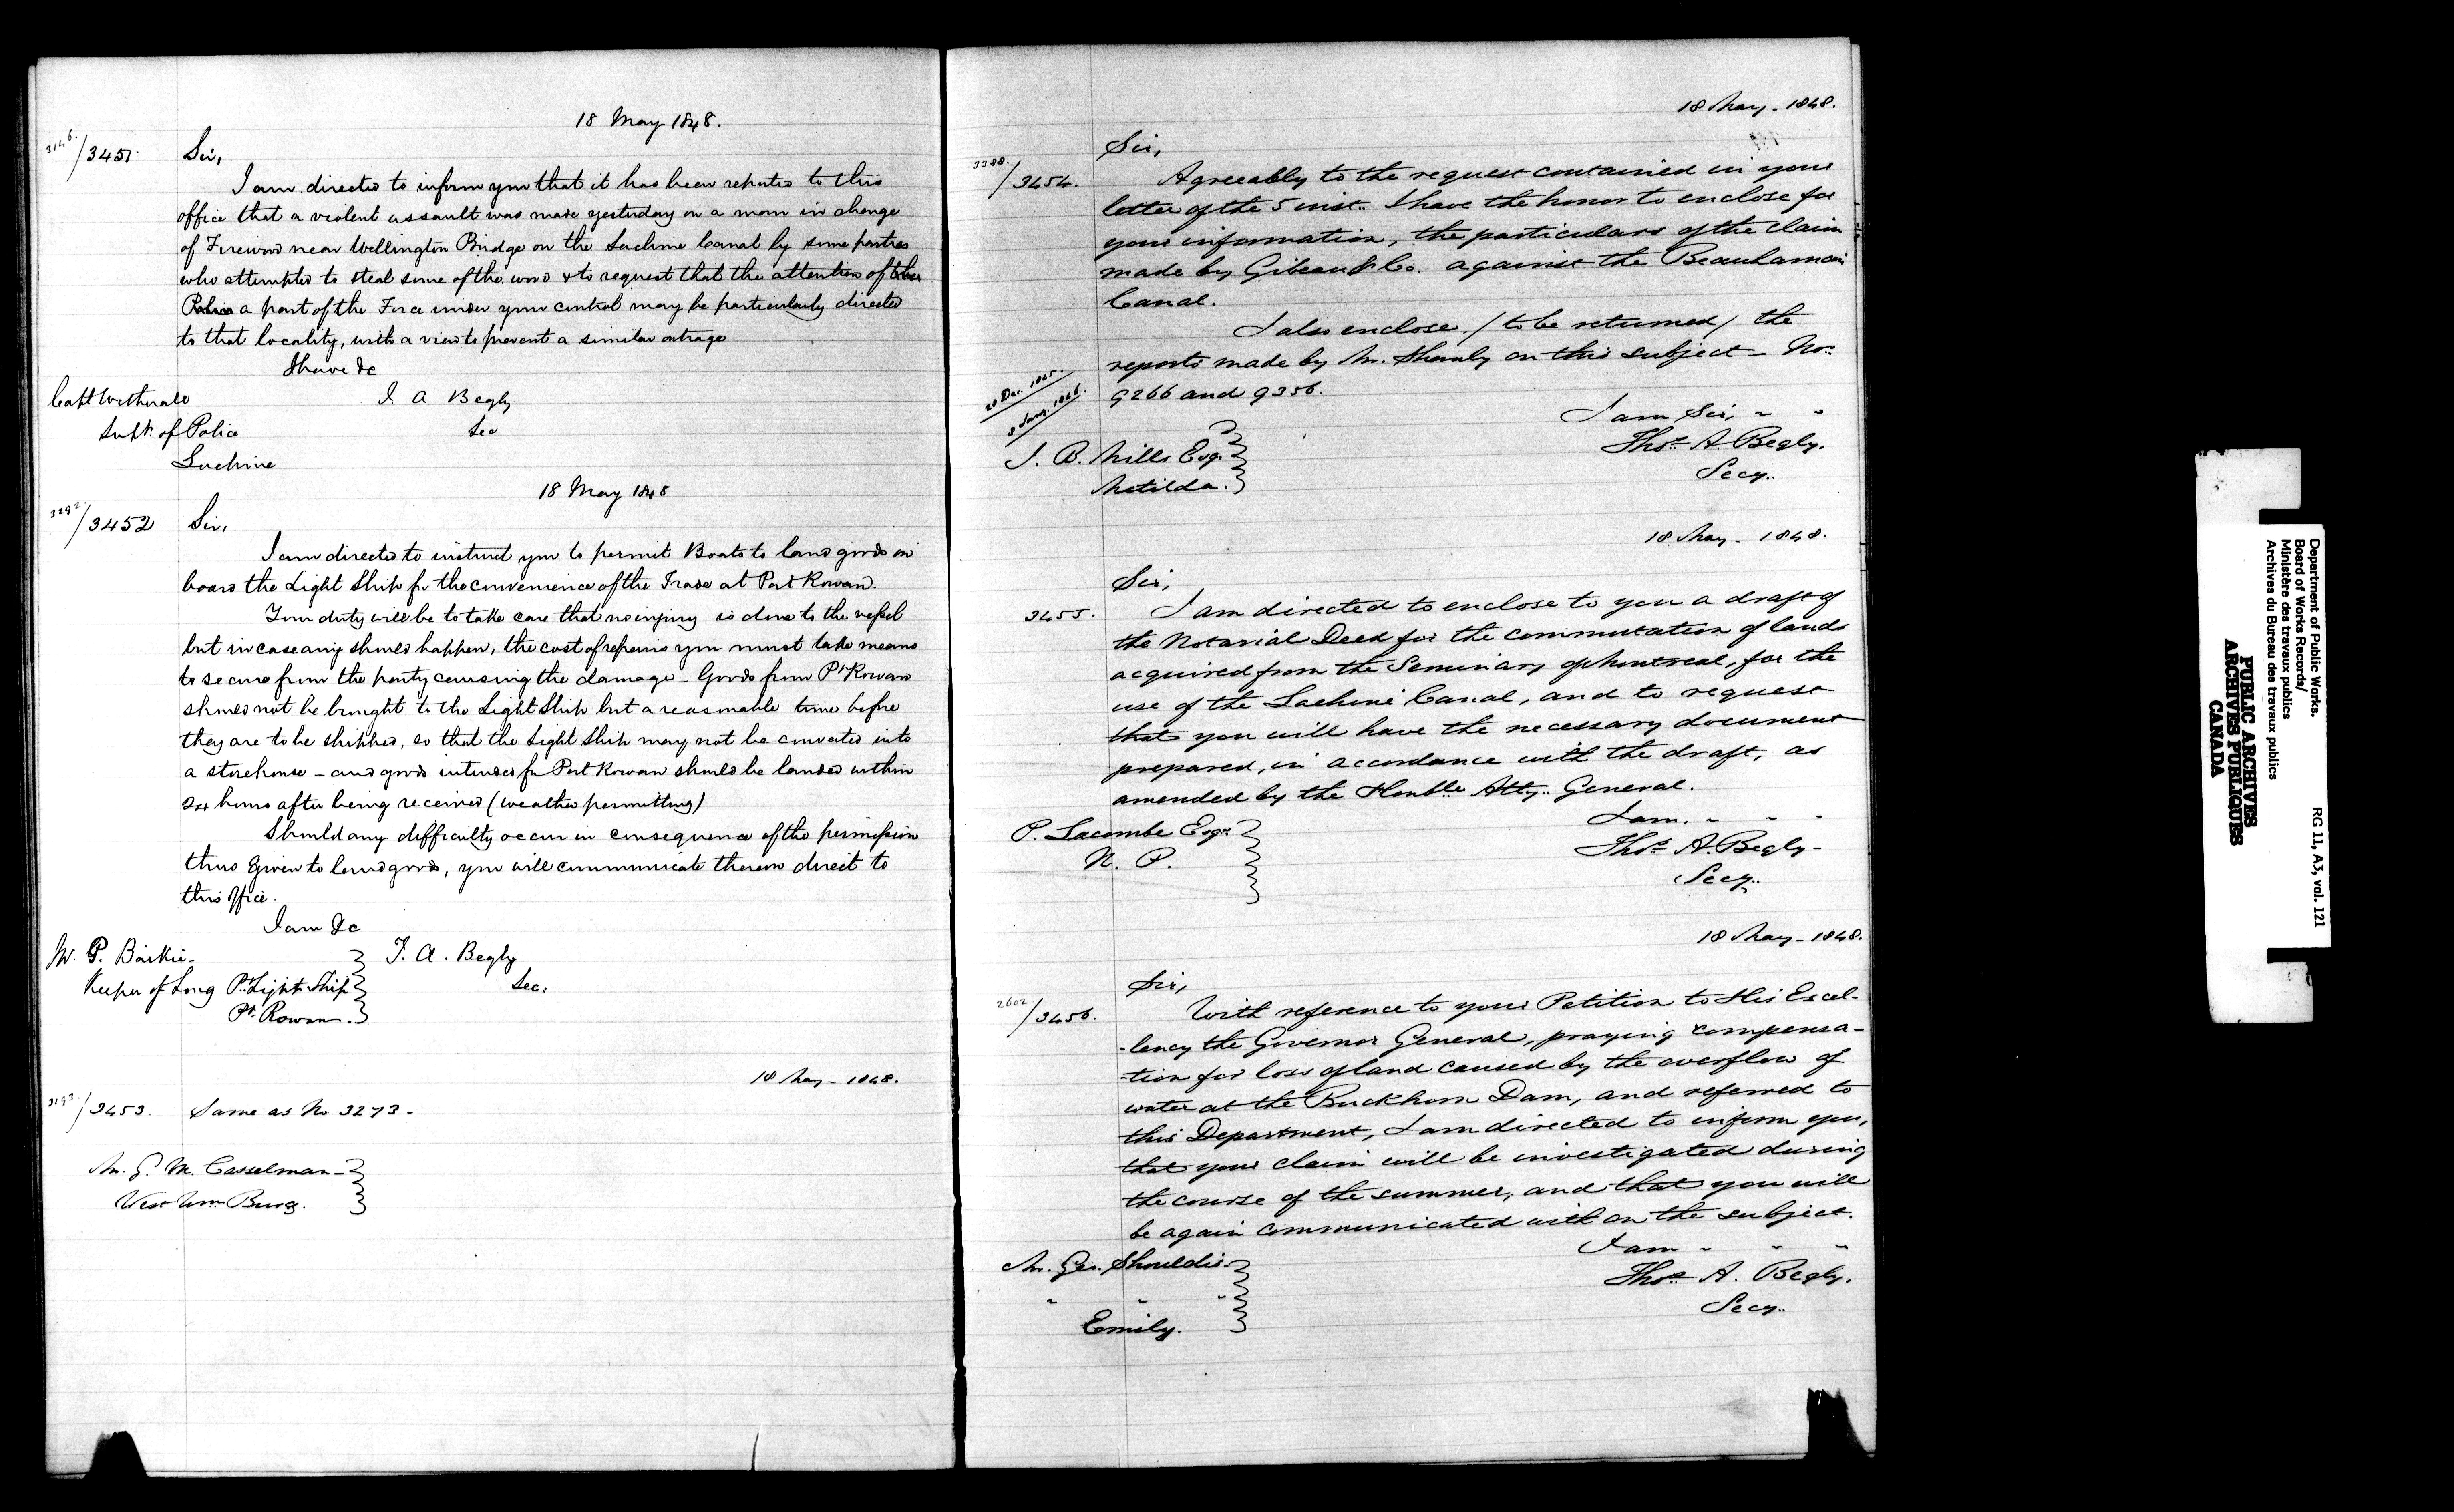 18 May 1848.
3146/3451 Sir,
I am directed to inform you that it has been reported to this
office that a violent assault was made yesterday on a man in charge
of Firewood near Wellington Bridge on the Lachine Canal by some parties
who attempted to steal some of the wood & to request that the attention of the
Police a part of the Force under your control may be particularly directed
to that locality, with a view to prevent a similar outrage
I have &c
Capt Wetherall T. A Begly
Supt. of Police Sec
Lachine
18 May 1848
3292/3452 Sir,
I am directed to instruct you to permit Boats to land goods on
board the Light Ship for the convenience of the Trade at Port Rowan.
Your duty will be to take care that no injury is done to the vessel
but in case any should happen, the cost of repairs you must take means
to secure from the party causing the damage - Goods from Pt Rowan
should not be brought to the Light Ship but a reasonable time before
they are to be shipped, so that the Light Ship may not be converted into
a storehouse - and goods intended for Port Rowan should be landed within
24 hours after being received (weather permitting)
Should any difficulty occur in consequence of the permission
thus given to land goods, you will communicate thereon direct to
this office.
I am &c
Mr. P. Baikie - T. A. Begly
Keeper of Long Pt. Light Ship Sec:
Pt. Rowan.
18 May - 1848.
3193/3453. Same as No 3273 -
Mr. G. M. Casselman -
West Wm Burg.
18 May - 1848.
Sir,
3388./3454. Agreeably to the request contained in your
letter of the 5 inst. I have the honor to enclose for
your information, the particulars of the claim
made by Gibeau & Co. against the Beauharnois
Canal.
I also enclose / to be returned / the
reports made by Mr. Shanly on this subject - Nos.
20 Dec. 1845.
8 Jany. 1846.
9266 and 9356.
I am Sir, " "
J. B. Mills Esq. Thos. A. Begly.
Matilda. Secy.
18 May - 1848.
Sir,
3455. I am directed to enclose to you a draft of
the Notarial Deed for the commutation of lands
acquired from the Seminary of Montreal, for the
use of the Lachine Canal, and to request
that you will have the necessary document
prepared, in accordance with the draft, as
amended by the Honble. Atty. General.
I am. " " "
P. Lacombe Esqr. Thos. A. Begly -
N. P. Secy.
18 May - 1848.
Sir,
2602/3456. With reference to your Petition to His Excel-
-lency the Governor General, praying compensa-
-tion for loss of land caused by the overflow of
water at the Buckhorn Dam, and referred to
this Department, I am directed to inform you,
that your claim will be investigated during
the course of the summer, and that you will
be again communicated with on the subject.
I am " " "
Mr. Geo. Shouldis Thos. A. Begly.
" " " Secy.
Emily.
Department of Public Works.
Board of Works Records/
Ministère des travaux publics
Archives du Bureau des travaux publics
RG 11, A3, vol. 121
PUBLIC ARCHIVES
ARCHIVES PUBLIQUES
CANADA